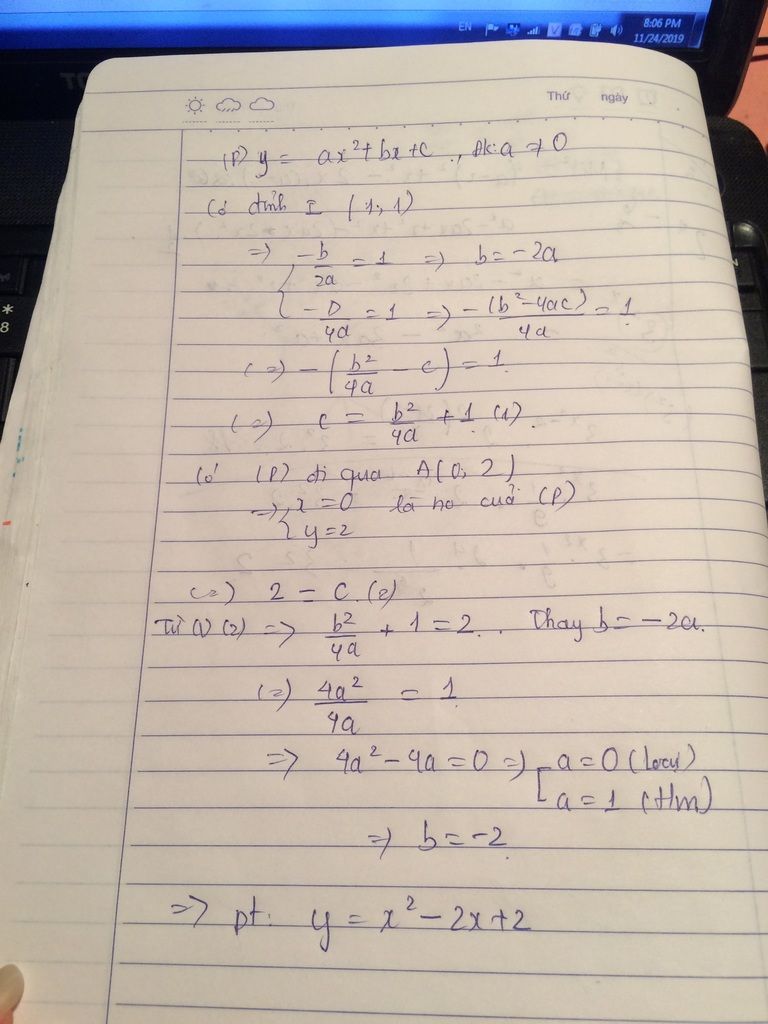 EN
8:06 PM
11/24/2019
*
8
Thứ ngày
(P) y = ax² + bx + c , Đk: a ≠ 0
Có đỉnh I (1; 1)
=> { -b/2a = 1 => b = -2a
-Δ/4a = 1 => -(b² - 4ac)/4a = 1
(=) -(b²/4a - c) = 1
(=) c = b²/4a + 1 (1).
Có (P) đi qua A(0; 2)
=> { x = 0 là no của (P)
y = 2
(=) 2 = c. (2)
Từ (1) (2) => b²/4a + 1 = 2. Thay b = -2a.
(=) 4a²/4a = 1
=> 4a² - 4a = 0 => [ a = 0 (loại)
a = 1 (t/m)
=> b = -2
=> pt: y = x² - 2x + 2